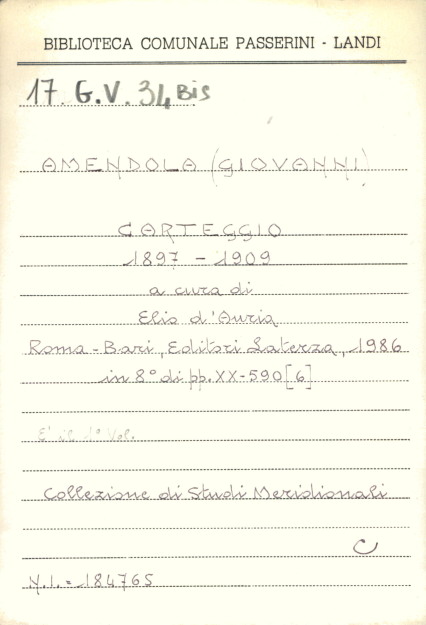 BIBLIOTECA COMUNALE PASSERINI - LANDI
17. G.V. 34 Bis
AMENDOLA (GIOVANNI)
CARTEGGIO
1897 - 1909
a cura di
Elio d'Auria
Roma-Bari, Editori Laterza, 1986
in 8° di pp. XX-590[6]
E' il 1° Vol.
Collezione di Studi Meridionali
C
N.I. = 184765